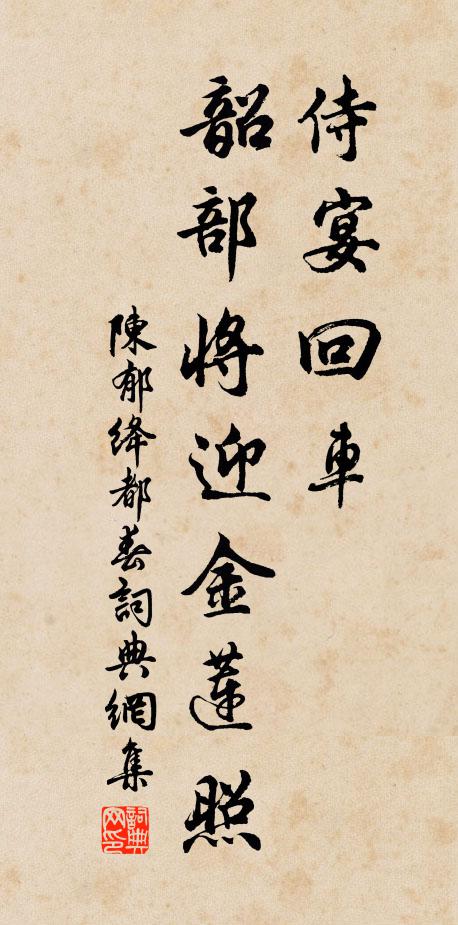 侍宴回車
韶部將迎金蓮照
陳郁絳都春詞典網集
詞典網印